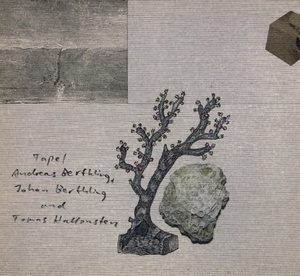 Tape!
Andreas Berthling,
Johan Berthling
and
Tomas Hallonsten